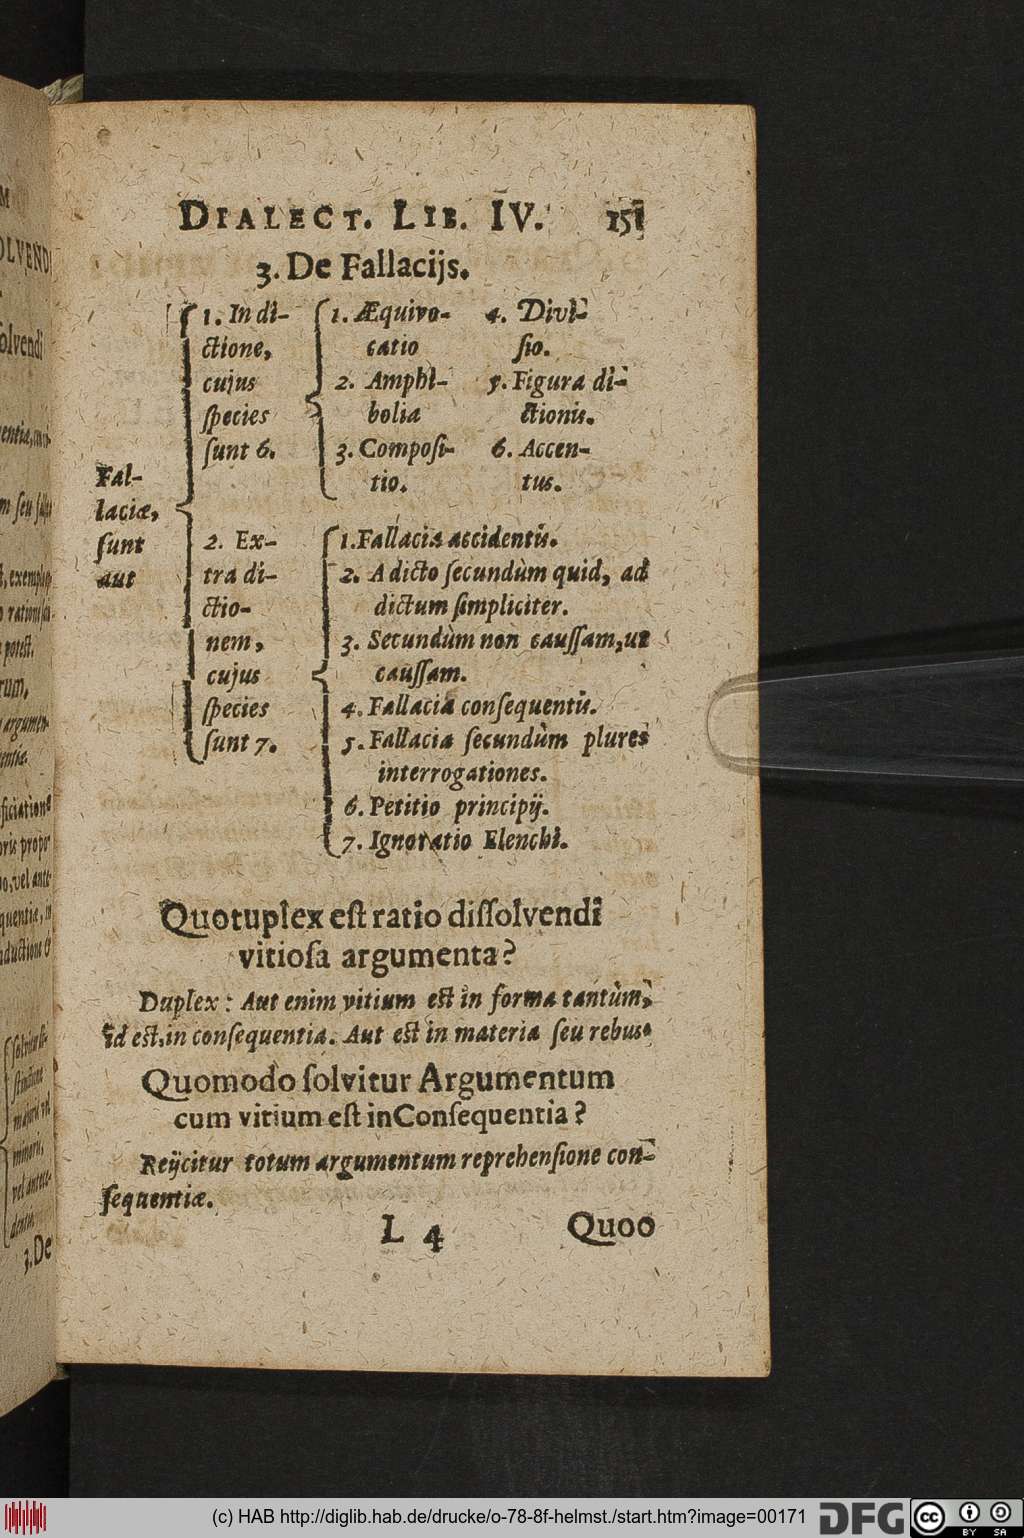 DIALECT. LIB. IV. 151
3. De Fallacijs.
Fal-
laciæ,
sunt
aut
1. In di-
ctione,
cujus
species
sunt 6.
1. Æquivo-
catio
2. Amphi-
bolia
3. Composi-
tio.
4. Divi-
sio.
5. Figura di-
ctionis.
6. Accen-
tus.
2. Ex-
tra di-
ctio-
nem,
cujus
species
sunt 7.
1. Fallacia accidentis.
2. A dicto secundùm quid, ad
dictum simpliciter.
3. Secundùm non caussam, ut
caussam.
4. Fallacia consequentis.
5. Fallacia secundùm plures
interrogationes.
6. Petitio principij.
7. Ignoratio Elenchi.
Quotuplex est ratio dissolvendi
vitiosa argumenta?
Duplex: Aut enim vitium est in forma tantùm,
id est, in consequentia. Aut est in materia seu rebus.
Quomodo solvitur Argumentum
cum vitium est in Consequentia?
Reijcitur totum argumentum reprehensione con-
sequentiæ.
L 4 Quoo
3. De
(c) HAB http://diglib.hab.de/drucke/o-78-8f-helmst./start.htm?image=00171 DFG cc BY SA